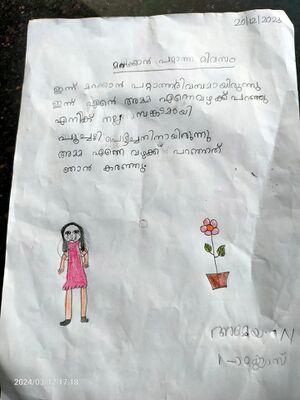 20/12/2023
മറക്കാൻ പറ്റാത്ത ദിവസം
ഇന്ന് മറക്കാൻ പറ്റാത്തദിവസമായിരുന്നു
ഇന്ന് എന്റെ അമ്മ എന്നെവഴക്ക് പറഞ്ഞു
എനിക്ക് നല്ല സങ്കടമായി
പെട്ടിച്ചതിനായിരുന്നു
അമ്മ എന്നെ വഴക്ക് പറഞ്ഞത്
ഞാൻ കരഞ്ഞു
N
2024/03/12 17:18